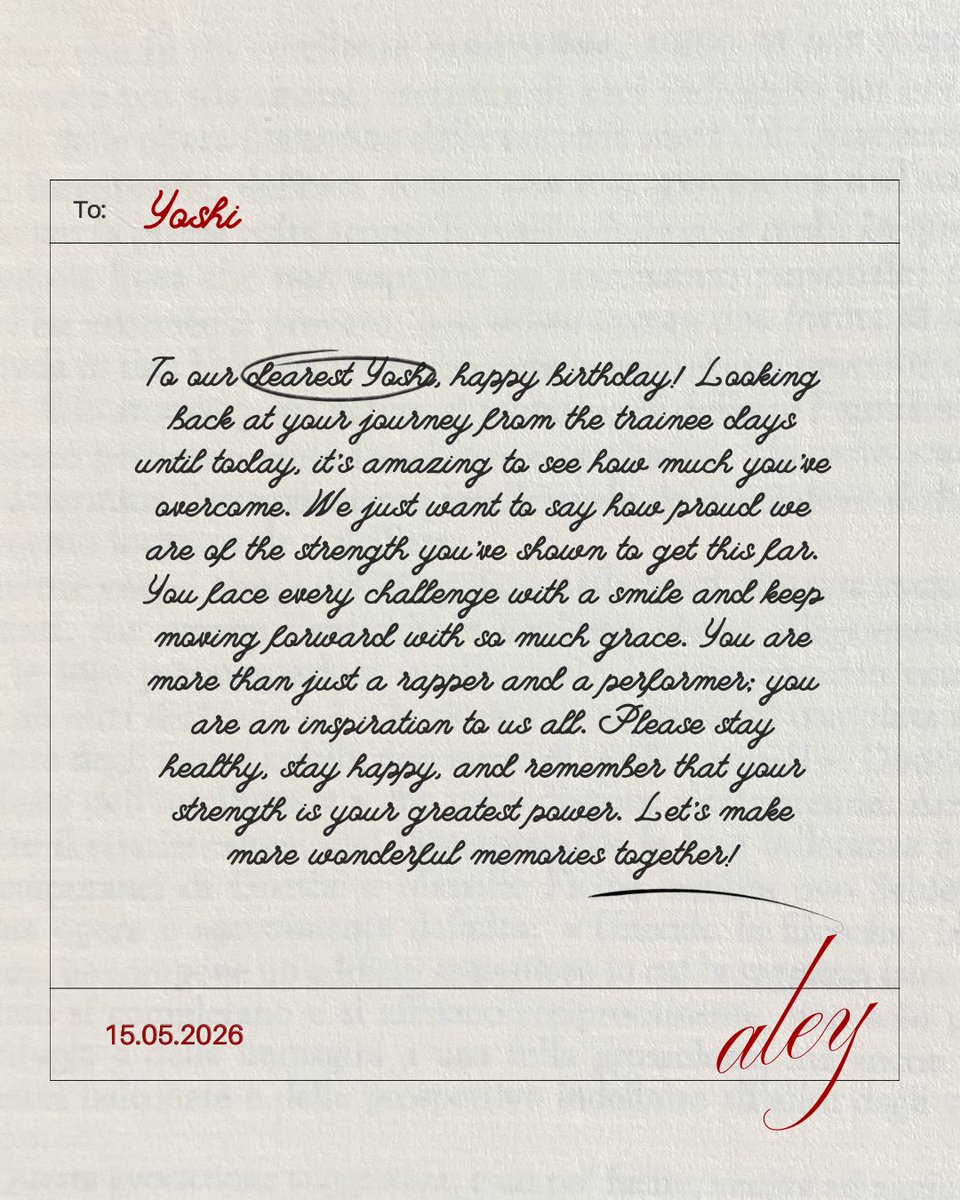 To: Yoshi
To our dearest Yoshi, happy birthday! Looking
back at your journey from the trainee days
until today, it's amazing to see how much you've
overcome. We just want to say how proud we
are of the strength you've shown to get this far.
You face every challenge with a smile and keep
moving forward with so much grace. You are
more than just a rapper and a performer; you
are an inspiration to us all. Please stay
healthy, stay happy, and remember that your
strength is your greatest power. Let's make
more wonderful memories together!
15.05.2026
aley